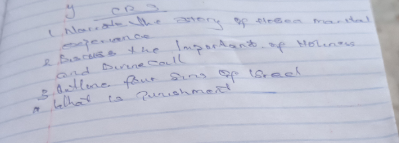 1. Narrate the story of Hosea marital
experience
2. Discuss the Important of Holiness
and Divine call
3. Outline four Sins of Israel
4. What is Punishment